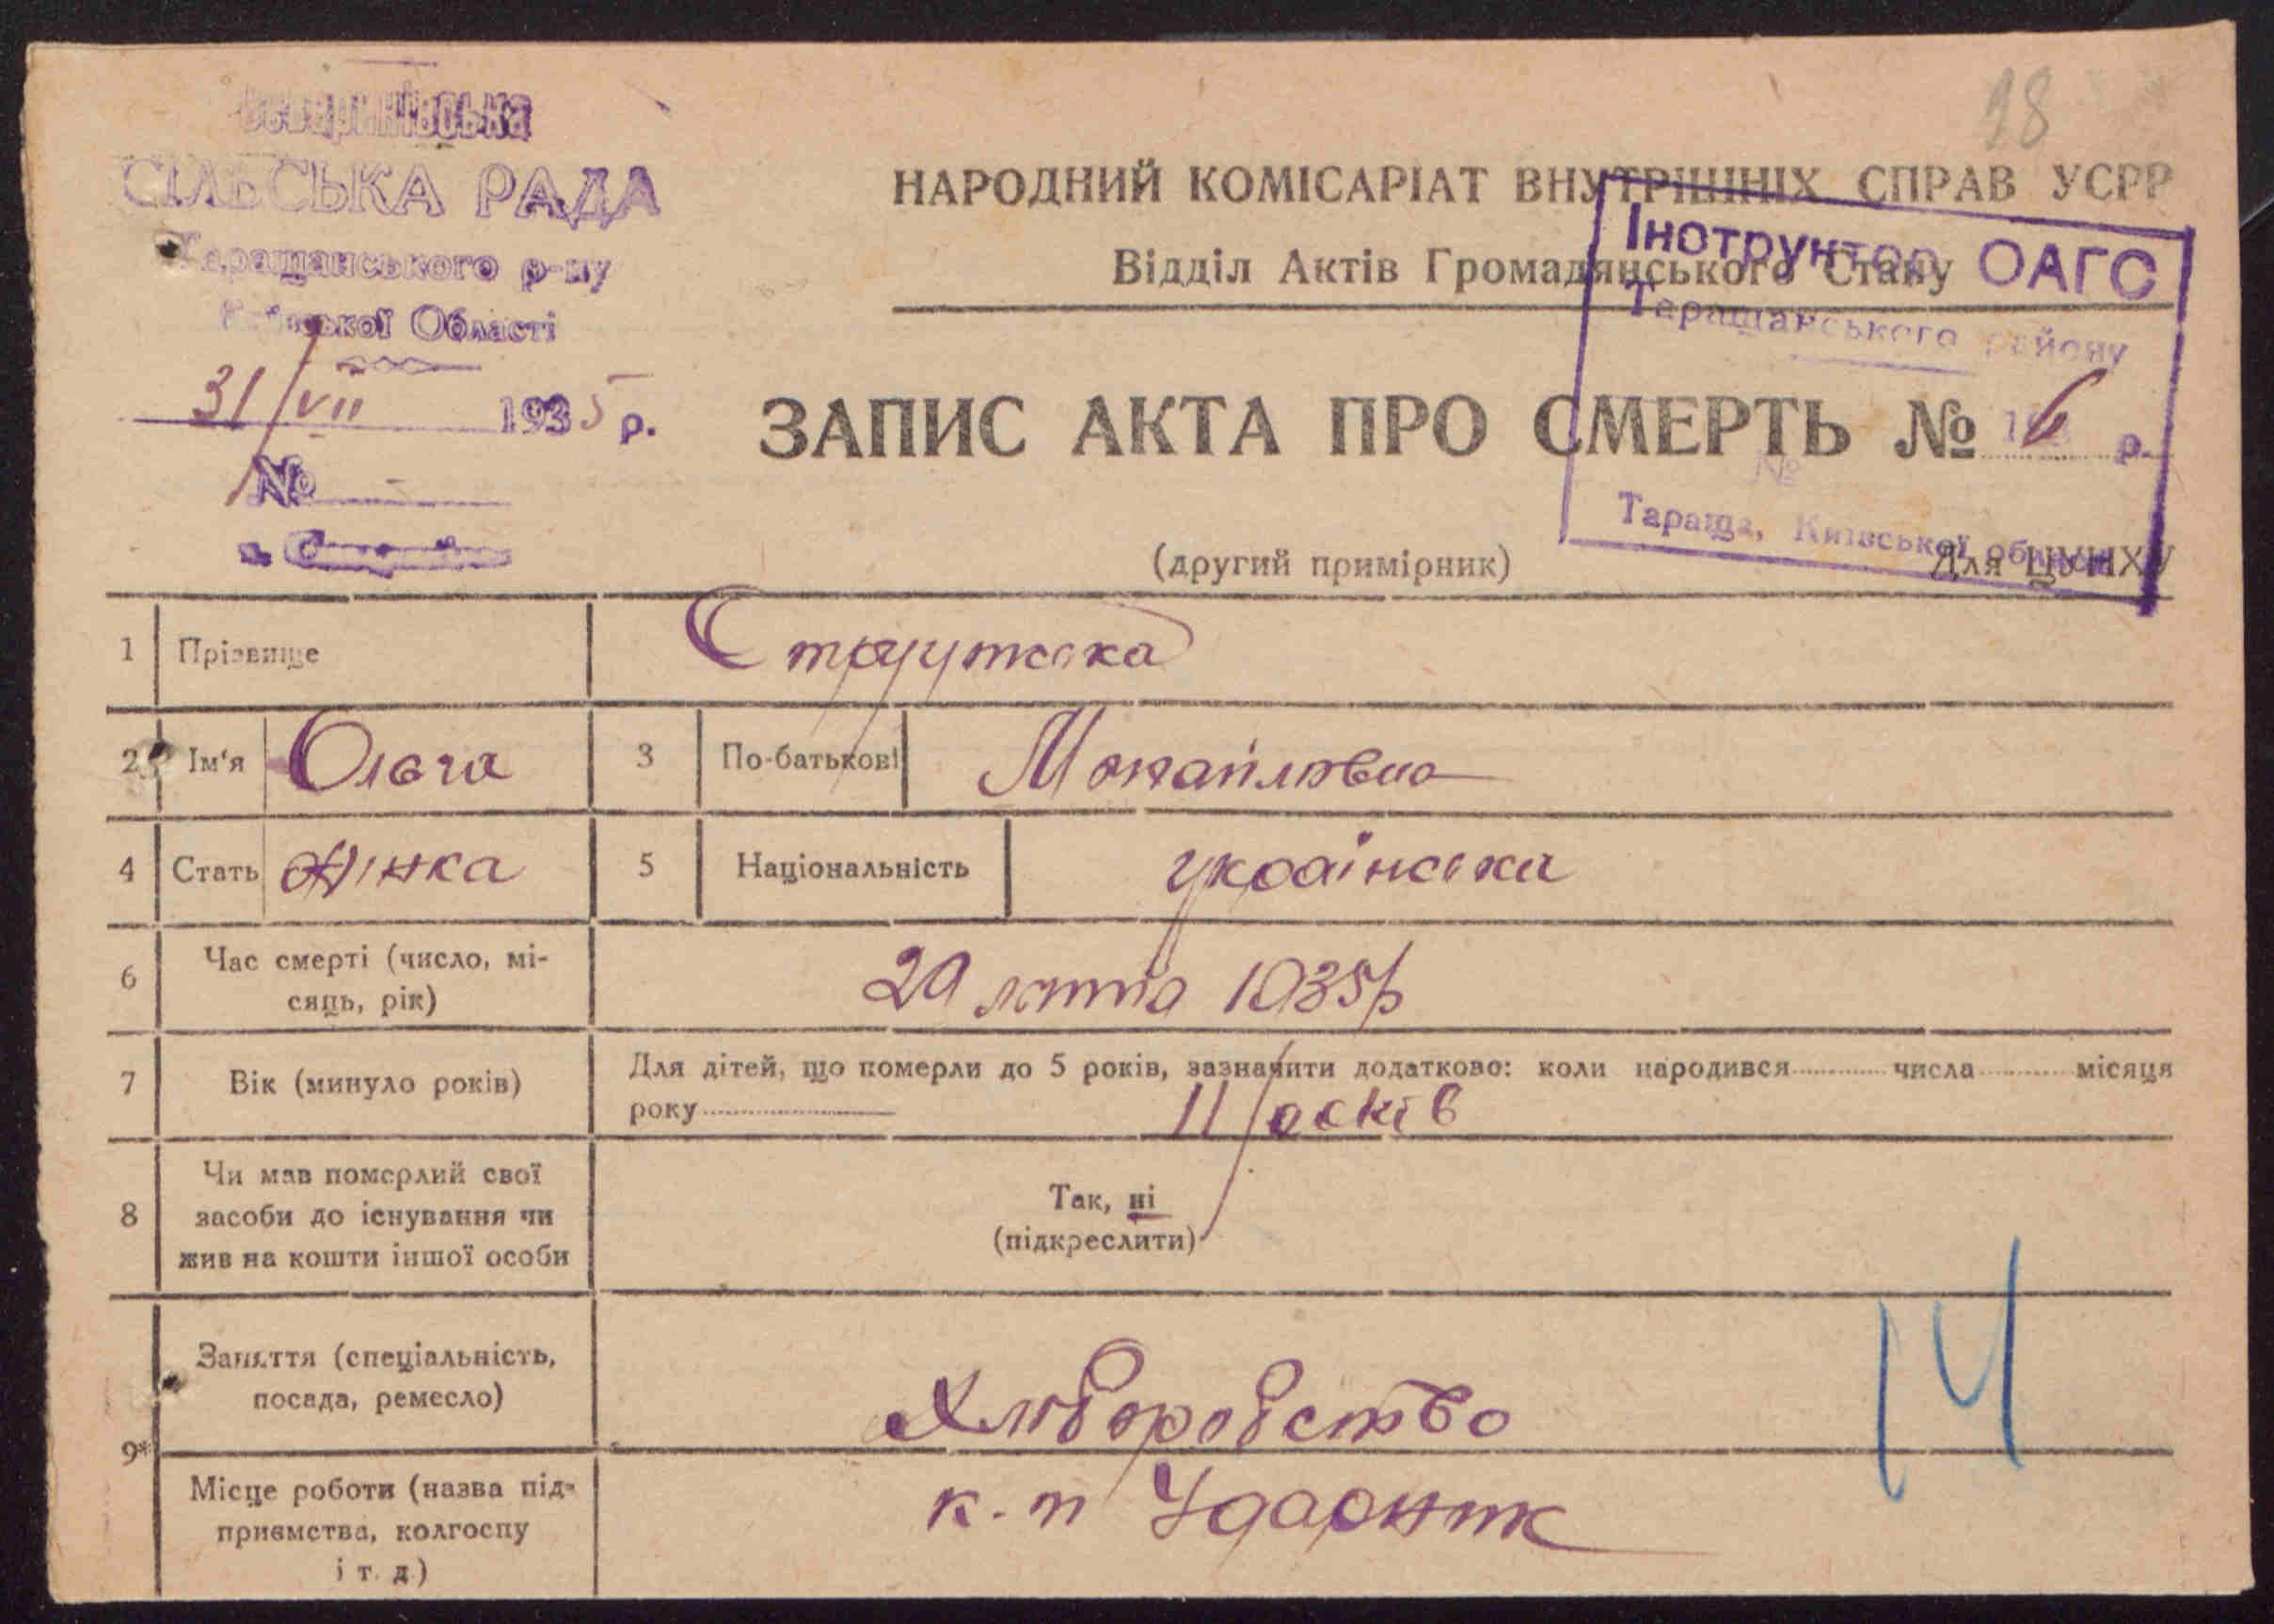 28
СІЛЬСЬКА РАДА
Таращанського р-ну
Області
31/VII 1935 р.
№ -
НАРОДНИЙ КОМІСАРІАТ ВНУТРІШНІХ СПРАВ УСРР
Відділ Актів Громадянського Стану
Інструктор ОАГС
Таращанського району
ЗАПИС АКТА ПРО СМЕРТЬ № 6
р.
№
Тараща, Київської області
(другий примірник)
Для ЦУНХУ
1 Прізвище
2 Ім'я Ольга 3 По-батькові
4 Стать жінка 5 Національність українська
6 Час смерті (число, мі-
сяць, рік) 1935 р
7 Вік (минуло років) Для дітей, що померли до 5 років, зазначити додатково: коли народився числа місяця
року 11
8 Чи мав померлий свої
засоби до існування чи
жив на кошти іншої особи
Так, ні
(підкреслити)
14
9* Заняття (спеціальність,
посада, ремесло)
Місце роботи (назва під-
приємства, колгоспу
і т. д)
к-п Ударник